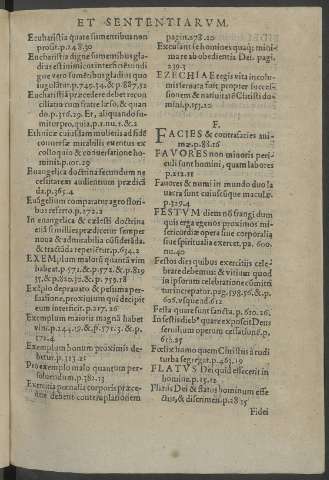 ET SENTENTIARVM.
Eucharistia quare sumentibus non
prosit.p.148.30
Eucharistia digne sumentibus gla
dius est inimicos interficiens: indi
gne vero sumentibus gladius quo
iugulātur.p.749.14.& p.887.52
Eucharistiā præcedere debet reconci
ciliatio cum fratre læso, & quan
do.p.516.29. Et, aliquando su-
mitur peo, quia.p.nu.1.& 2
Ethnicæ cuiusdam mulieris ad fidē
conuersæ mirabilis euentus ex
colloquio & conuersatione ho-
minis.p.01.29
Euangelica doctrina secundum ne
cessitatem audientium prædicā
da.p.365.4
Euāgelium comparatur agro flori-
bus referto.p.172.2
In euangelica & cælesti doctrina
etiā si millies prædicetur semper
noua & admirabilia cōsiderāda,
& tractāda reperiūtur.p.634.2
EXEMplum maioris quantā vim
habeat.p.571.& p.572.& p.819
35.& p.820.32.& p.759.18
Exēplo deprauato & pessima per-
suasione, proximum qui decipit
eum interficit.p.217.26
Exemplum maioris magnā habet
vim.p.244.19.& p.571.3.& p.
572.4
Exemplum bonum proximis de-
betur.p.313.21
Pro exemplo malo quantum per-
soluendum.p.381.13
Exercitia spiritalia corporis præce-
dere debent contemplationem
pagin.278.20
Excusant se homines quaq; mini-
mare ab obedientia Dei. pagi.
239.3
EZECHIAE regis vita incolu-
mis seruata fuit propter succes-
sionem & natiuitatē Christi do-
mini.p.153.20
F.
FACIES & contrafacties ani-
mæ.p.88.16
FAVORES non minoris peri-
culi sunt homini, quam labores
p.212.11
Fauores & numi in mundo duo la
uacra sunt cuiuscūque maculæ.
p.329.4
FESTVM diem nō frangi dum
quis erga egenos proximos mi-
sericordiæ opera siue corporalia
siue spiritualia exercet.pa. 600.
nu.40
Festos dies quibus exercitiis cele-
brare debemus: & vitium quod
in ipsorum celebratione commit
titur increpatur.pag.598.56.& p.
606.vsque ad.612
Festa quare sunt sancta.p.610.26.
In festis diebꝰ quare exposcit Deus
seruilium operum cessationē.p.
613.25
Fœlix homo quem Christus à rudi
turba segregat.p.463.19
FLATVS Dei quid effecerit in
homine.p.15.12
Flatus Dei & flatus hominum effe
ctus, & discrimen.p.28.35
Fidei